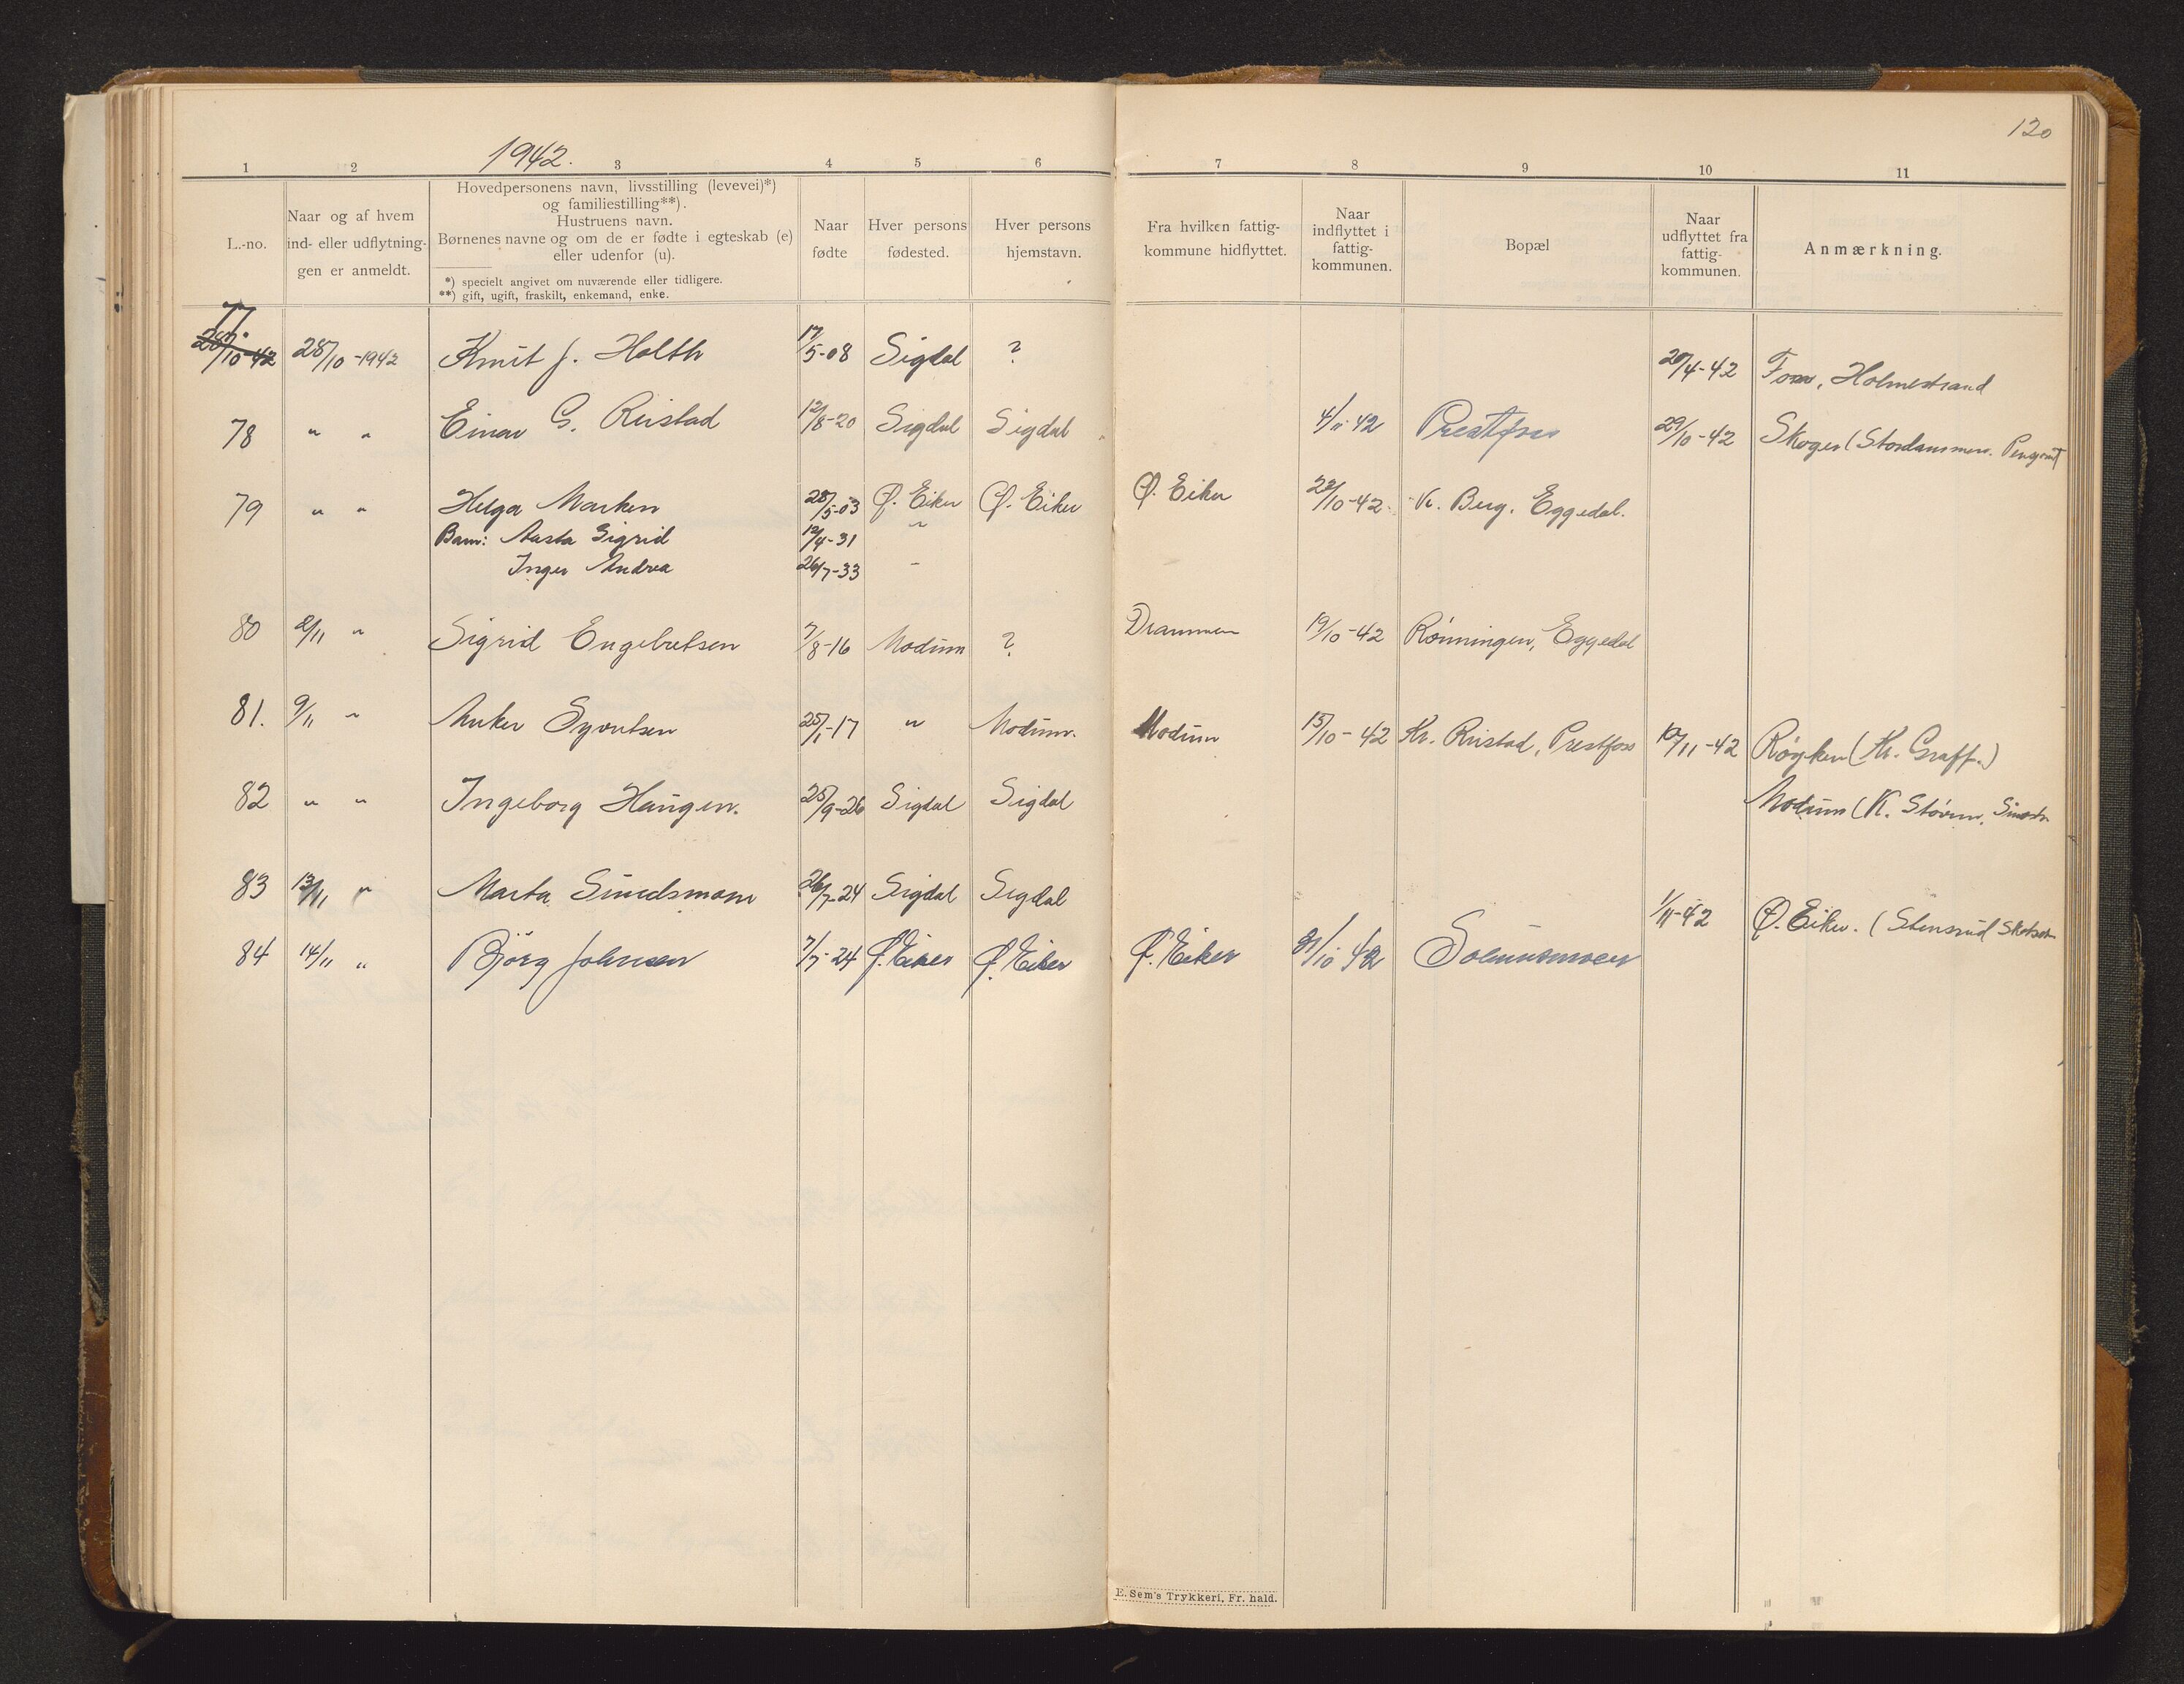 120
1942.
1 2 3 4 5 6 7 8 9 10 11
L.-no.
Naar og af hvem
ind- eller udflytnin-
gen er anmeldt.
Hovedpersonens navn, livsstilling (levevei)*)
og familiestilling**).
Hustruens navn.
Børnenes navne og om de er fødte i egteskab (e)
eller udenfor (u).
*) specielt angivet om nuværende eller tidligere.
**) gift, ugift, fraskilt, enkemand, enke.
Naar
fødte
Hver persons
fødested.
Hver persons
hjemstavn.
Fra hvilken fattig-
kommune hidflyttet.
Naar
indflyttet i
fattig-
kommunen.
Bopæl
Naar
udflyttet fra
fattig-
kommunen.
Anmærkning.
77
28/10-42 28/10-1942 Knut J. Holth 17/5-08 Sigdal ? 20/4-42 Holmestrand
78 " " Einar G. Rustad 12/8-20 Sigdal Sigdal 4/11 42 Prestfoss 29/10-42 Skoger (Stordammen.
79 " " Helga Marken 28/5-03 Ø. Eiker Ø. Eiker Ø. Eiker 22/10-42. V. Berg. Eggedal.
Barn: Aasta Sigrid 12/4-31 "
Inger Andrea 26/7-33 "
80 2/11 " Sigrid Engebretsen 7/8-16 Modum ? Drammen 19/10-42 Rønningen, Eggedal
81. 9/11 " Anker Syvertsen 25/1-17 " Modum. Modum 15/10-42 Kr. Rustad, Prestfoss 10/11-42 Røyken (Kr. Graff.)
82 " " Ingeborg Haugen. 25/9-26 Sigdal Sigdal Modum (K. Støvern,
83 13/11 " Marta Sundsmoen 26/7-24 Sigdal Sigdal 1/11-42 Ø. Eiker. (Stensrud Skotselv
84 14/11 " Bjørg Johnsen 7/7-24 Ø. Eiker Ø. Eiker Ø. Eiker 31/10 42 Solumsmoen
E. Sem's Trykkeri, Fr. hald.